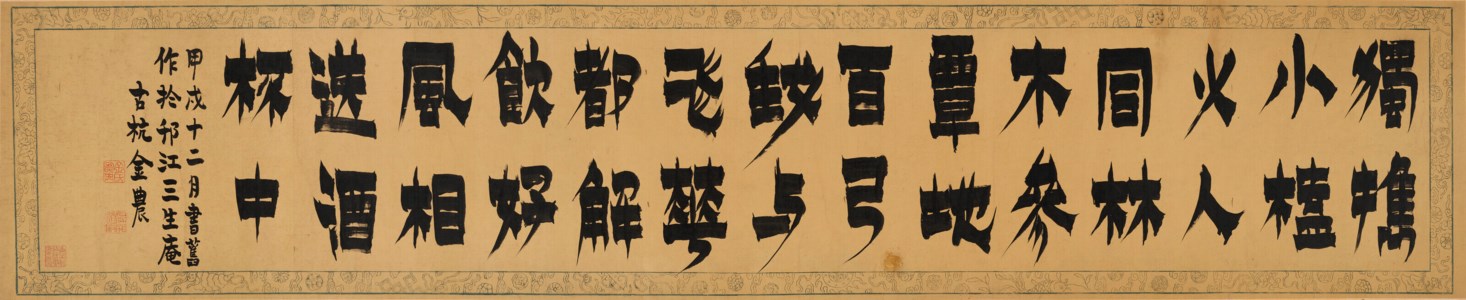 獨携
小榼
少人
同林
木參
覃地
百弓
与
飛華
都解
飲好
風相
送酒
杯中
甲戌十二月書舊
作於邗江三生庵
古杭金農